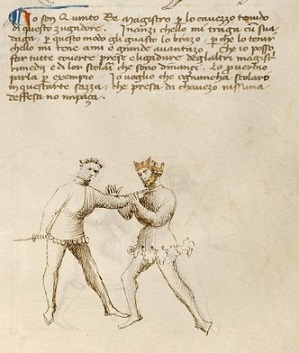 Io son Quinto Re magistro per lo cavezzo tenudo
di questo zugadore. Inanzi chello mi traga cu sua
daga, per questo modo gli guasto lo brazo, per che lo tenir
chello mi tene a mi è grande avantazo. Che io posso
far tutte coverte prese e ligadure degl'altri magistri
rimedii e di lor scolari che sono dinançi. Lo proverbio
parla per exempio. Io voglio che ognuncha scolaro
in quest'arte sazza, che presa di cavezo nissuna
deffesa no impaça.